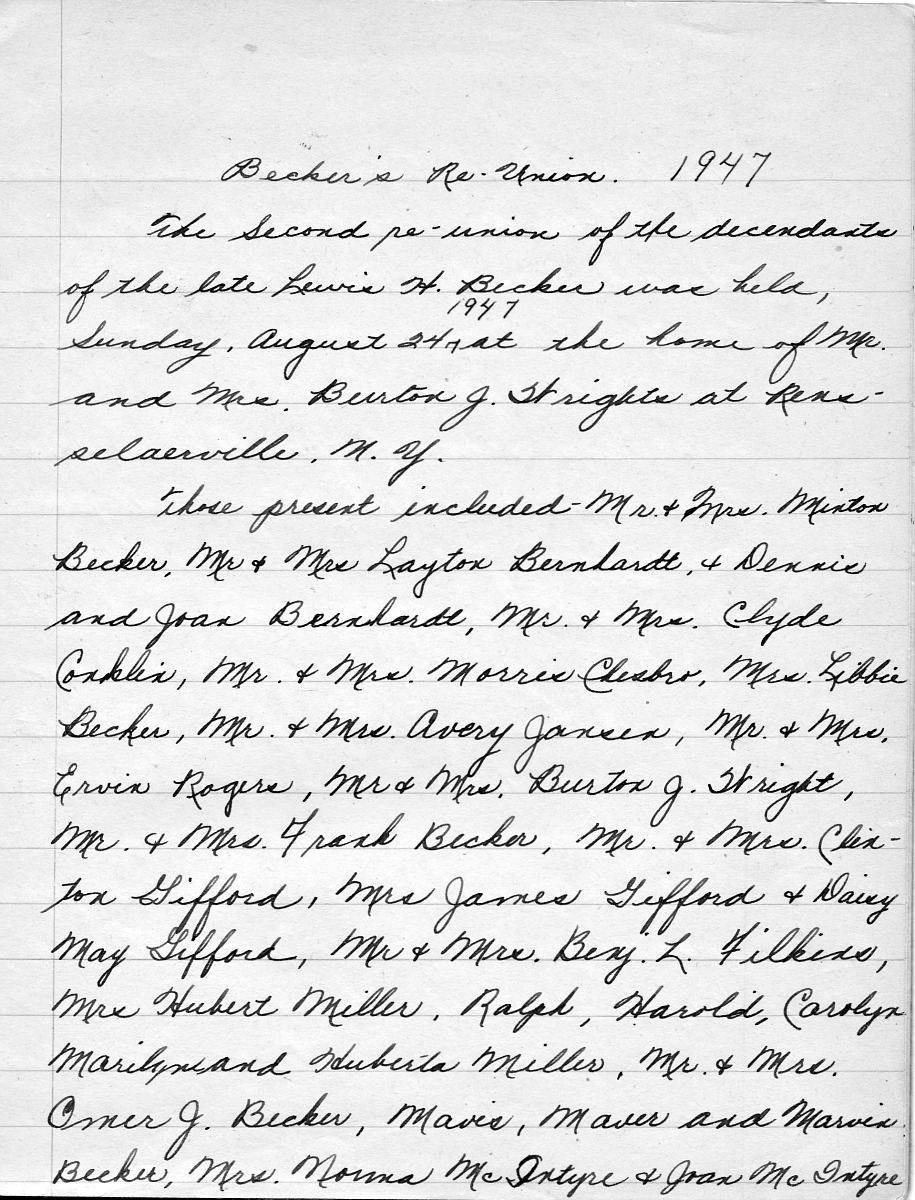 Becker's Re-Union. 1947
The Second re-union of the decendants
of the late Lewis H. Becker was held,
1947
Sunday, August 24, at the home of Mr.
and Mrs. Burton J. Wrights at Rens-
selaerville, N. Y.
Those present included - Mr. & Mrs. Minton
Becker, Mr & Mrs Layton Bernhardt, & Dennis
and Joan Bernhardt, Mr. & Mrs. Clyde
Conklin, Mr. & Mrs. Morris Chesbro, Mrs. Libbie
Becker, Mr. & Mrs. Avery Jansen, Mr. & Mrs.
Ervin Rogers, Mr & Mrs. Burton J. Wright,
Mr. & Mrs. Frank Becker, Mr. & Mrs. Clin-
ton Gifford, Mrs James Gifford & Daisy
May Gifford, Mr & Mrs. Benj. L. Filkins,
Mrs Hubert Miller, Ralph, Harold, Carolyn
Marilyn and Huberta Miller, Mr. & Mrs.
Omer J. Becker, Mavis, Maver and Marvin
Becker, Mrs. Norma McIntyre & Joan McIntyre